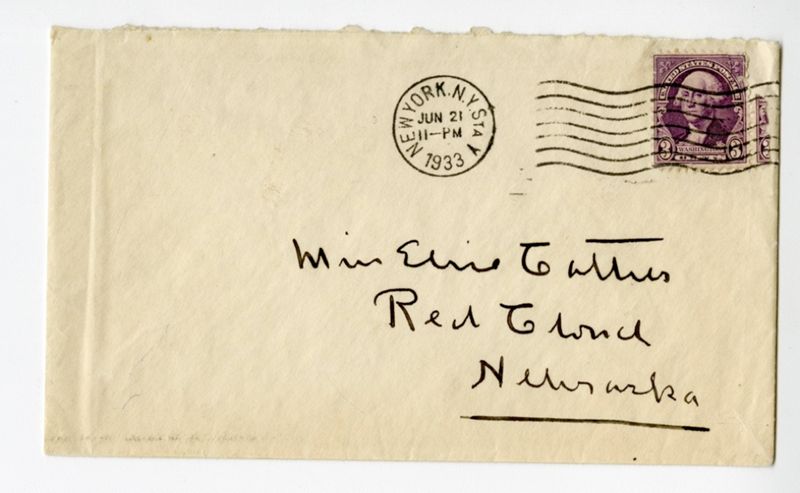 NEW YORK, N.Y. STA Y
JUN 21
11-PM
1933
UNITED STATES POSTAGE
3 WASHINGTON 3
Miss Elsie Cather
Red Cloud
Nebraska